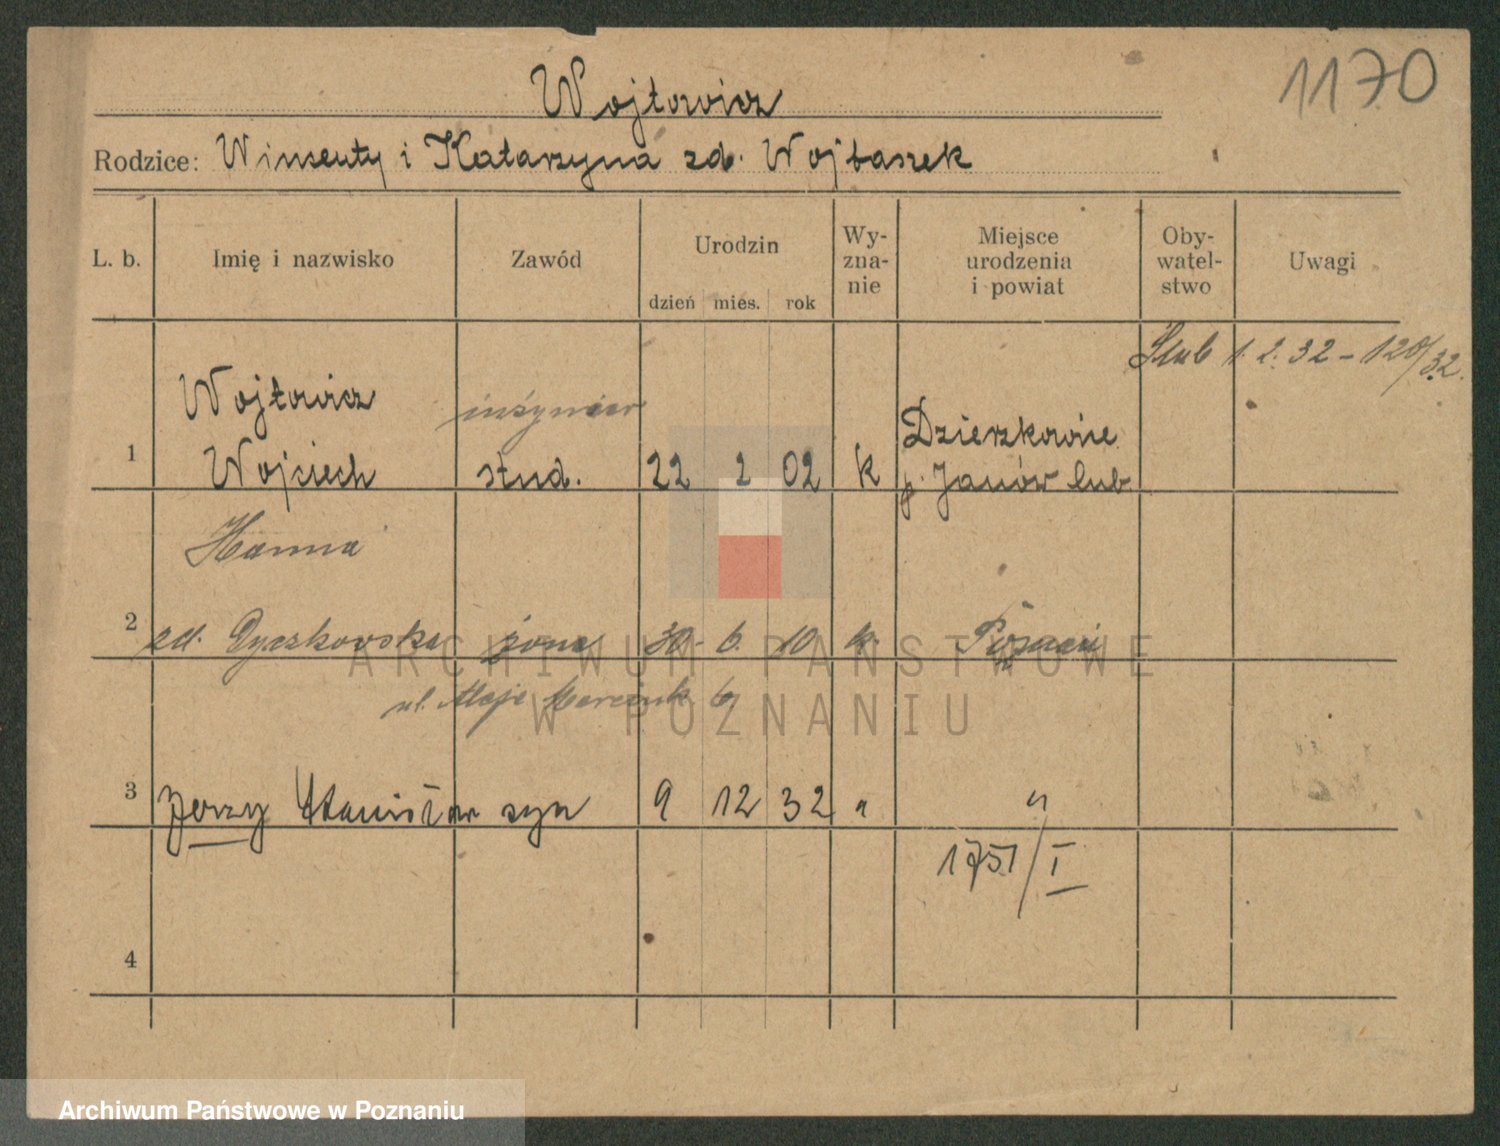 1170
Wojtowicz
Rodzice: Winsenty i Katarzyna zd. Wojtaszek
L. b. Imię i nazwisko Zawód Urodzin Wy-zna-nie Miejsce urodzenia i powiat Oby-watel-stwo Uwagi
dzień mies. rok
Ślub 1. 2. 32 - 120/32.
Wojtowicz inżynier Dzierzkowice
1 Wojciech stud. 22 2 02 k p. Janów lub.
Hanna
2 zd. Dyczkowska żona 30 6. 10 k. Poznań
ul. Marcink 6
3 Jerzy Stanisław syn 9 12 32 " "
1751/I
4
ARCHIWUM PAŃSTWOWE
W POZNANIU
Archiwum Państwowe w Poznaniu